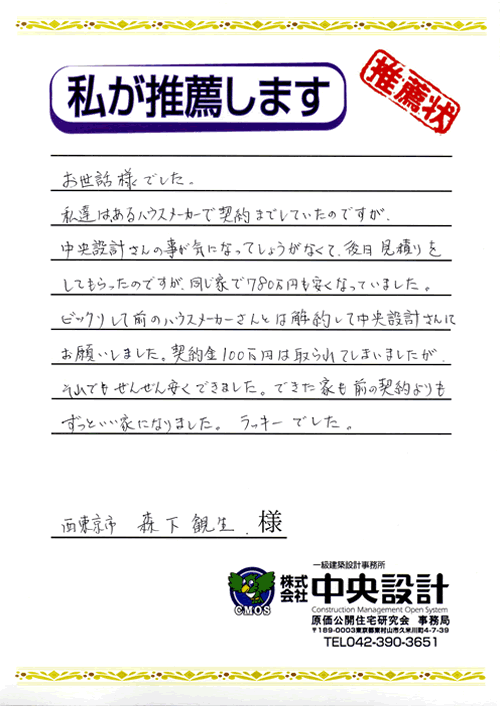 私が推薦します
推薦状
お世話様でした。
私達は、あるハウスメーカーで契約までしていたのですが、
中央設計さんの事が気になってしょうがなくて、後日見積りを
してもらったのですが、同じ家で780万円も安くなっていました。
ビックリして前のハウスメーカーさんとは解約して中央設計さんに
お願いしました。契約金100万円は取られてしまいましたが、
それでもぜんぜん安くできました。できた家も前の契約よりも
ずっといい家になりました。ラッキーでした。
西東京市 森下観生 様
一級建築設計事務所
株式会社 中央設計
CMOS
Construction Management Open System
原価公開住宅研究会 事務局
〒189-0003東京都東村山市久米川町4-7-39
TEL042-390-3651